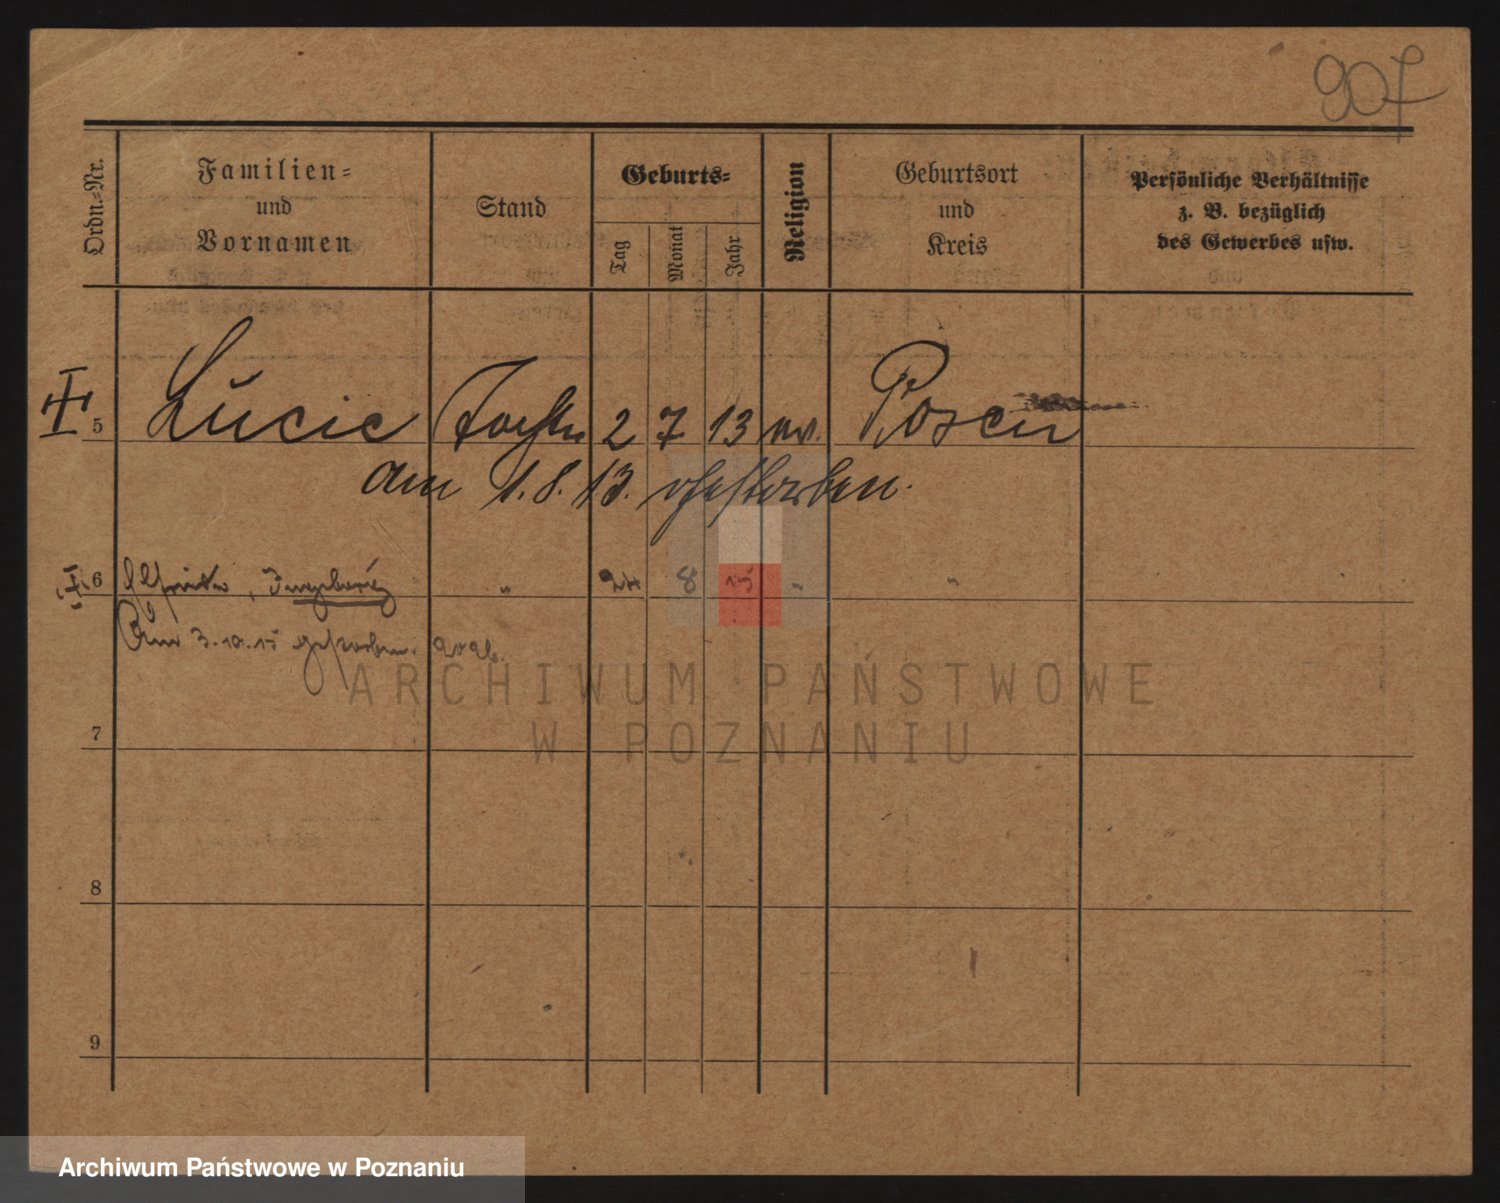 907
Ordn.-Nr.
Familien-
und
Vornamen
Stand
Geburts-
Tag
Monat
Jahr
Religion
Geburtsort
und
Kreis
Persönliche Verhältnisse
z. B. bezüglich
des Gewerbes usw.
5 Lucie Tochter 2 7 13 ev. Posen
am 1.8.13. gestorben.
6 Ingeborg " 24 8 15 " "
Am 3.10.15 gestorben.
7
8
9
ARCHIWUM PAŃSTWOWE
W POZNANIU
Archiwum Państwowe w Poznaniu